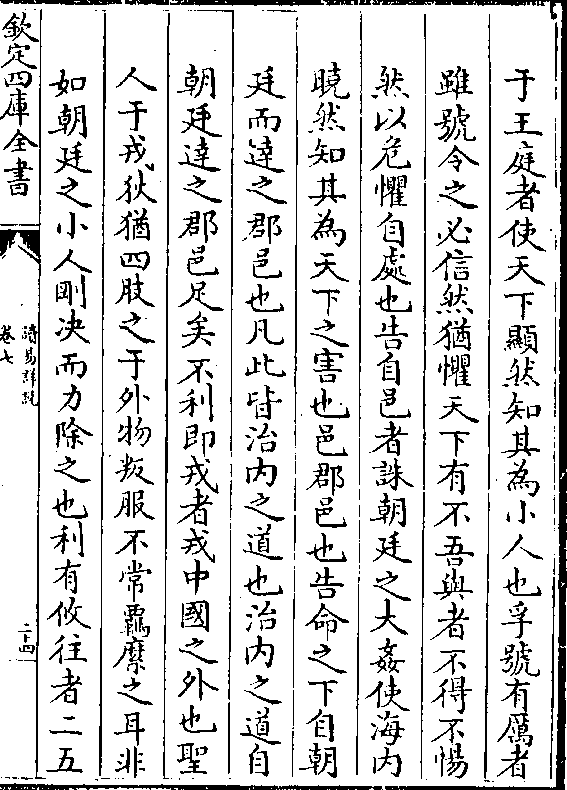 于王庭者使天下顯然知其為小人也孚號有厲者
雖號令之必信然猶懼天下有不吾與者不得不惕
然以危懼自處也告自邑者誅朝廷之大姦使海内
曉然知其為天下之害也邑郡邑也告命之下自朝
廷而達之郡邑也凡此皆治内之道也治内之道自
朝廷達之郡邑足矣不利即戎者戎中國之外也聖
人于戎狄猶四肢之于外物叛服不常羈縻之耳非
如朝廷之小人剛决而力除之也利有攸往者二五
欽定四庫全書
讀易詳說
卷七
二十四